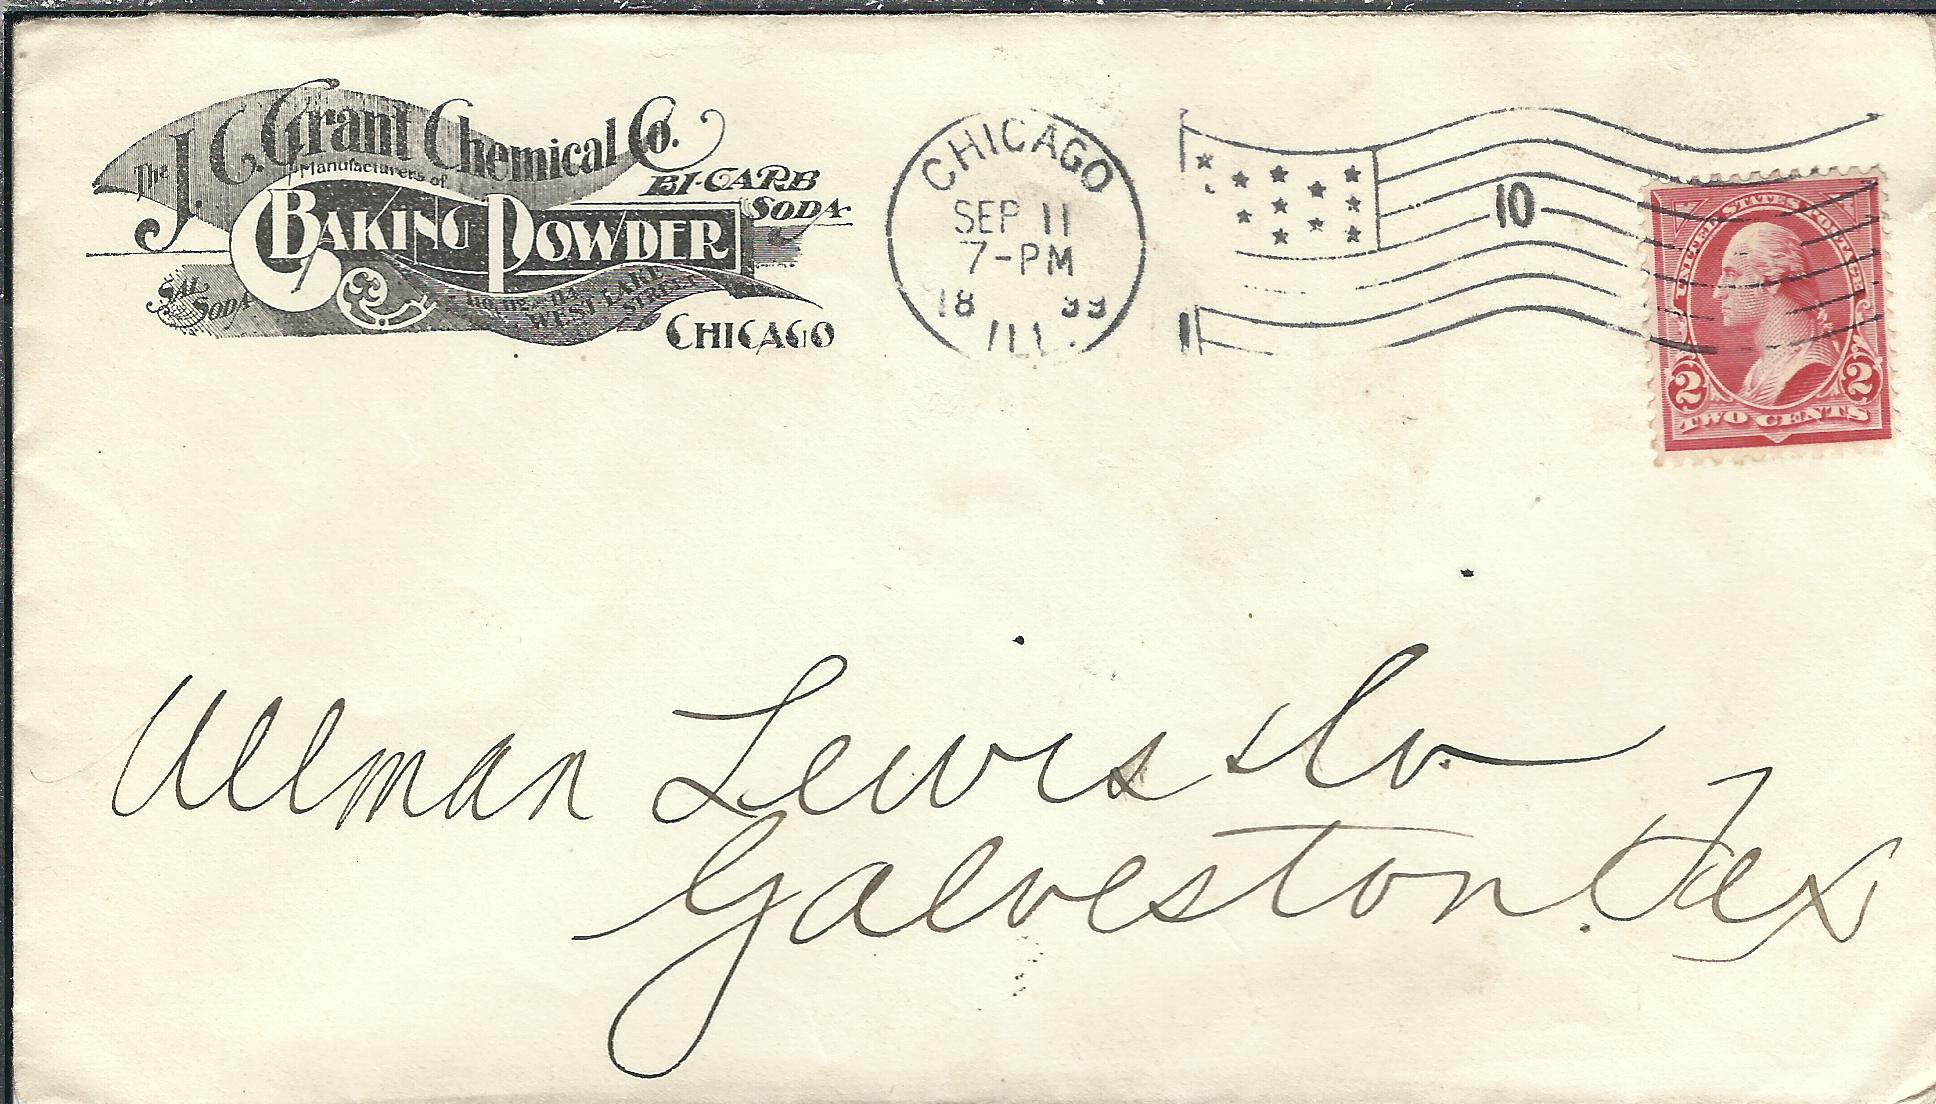 The J. C. Grant Chemical Co.
Manufacturers of
BAKING POWDER
BI-CARB
SODA
SAL
SODA
WEST LAKE
STREET
CHICAGO
CHICAGO
SEP 11
7-PM
18 99
ILL.
10
1
UNITED STATES POSTAGE
2 2
TWO CENTS
Ullman Lewis & Co.
Galveston. Tex